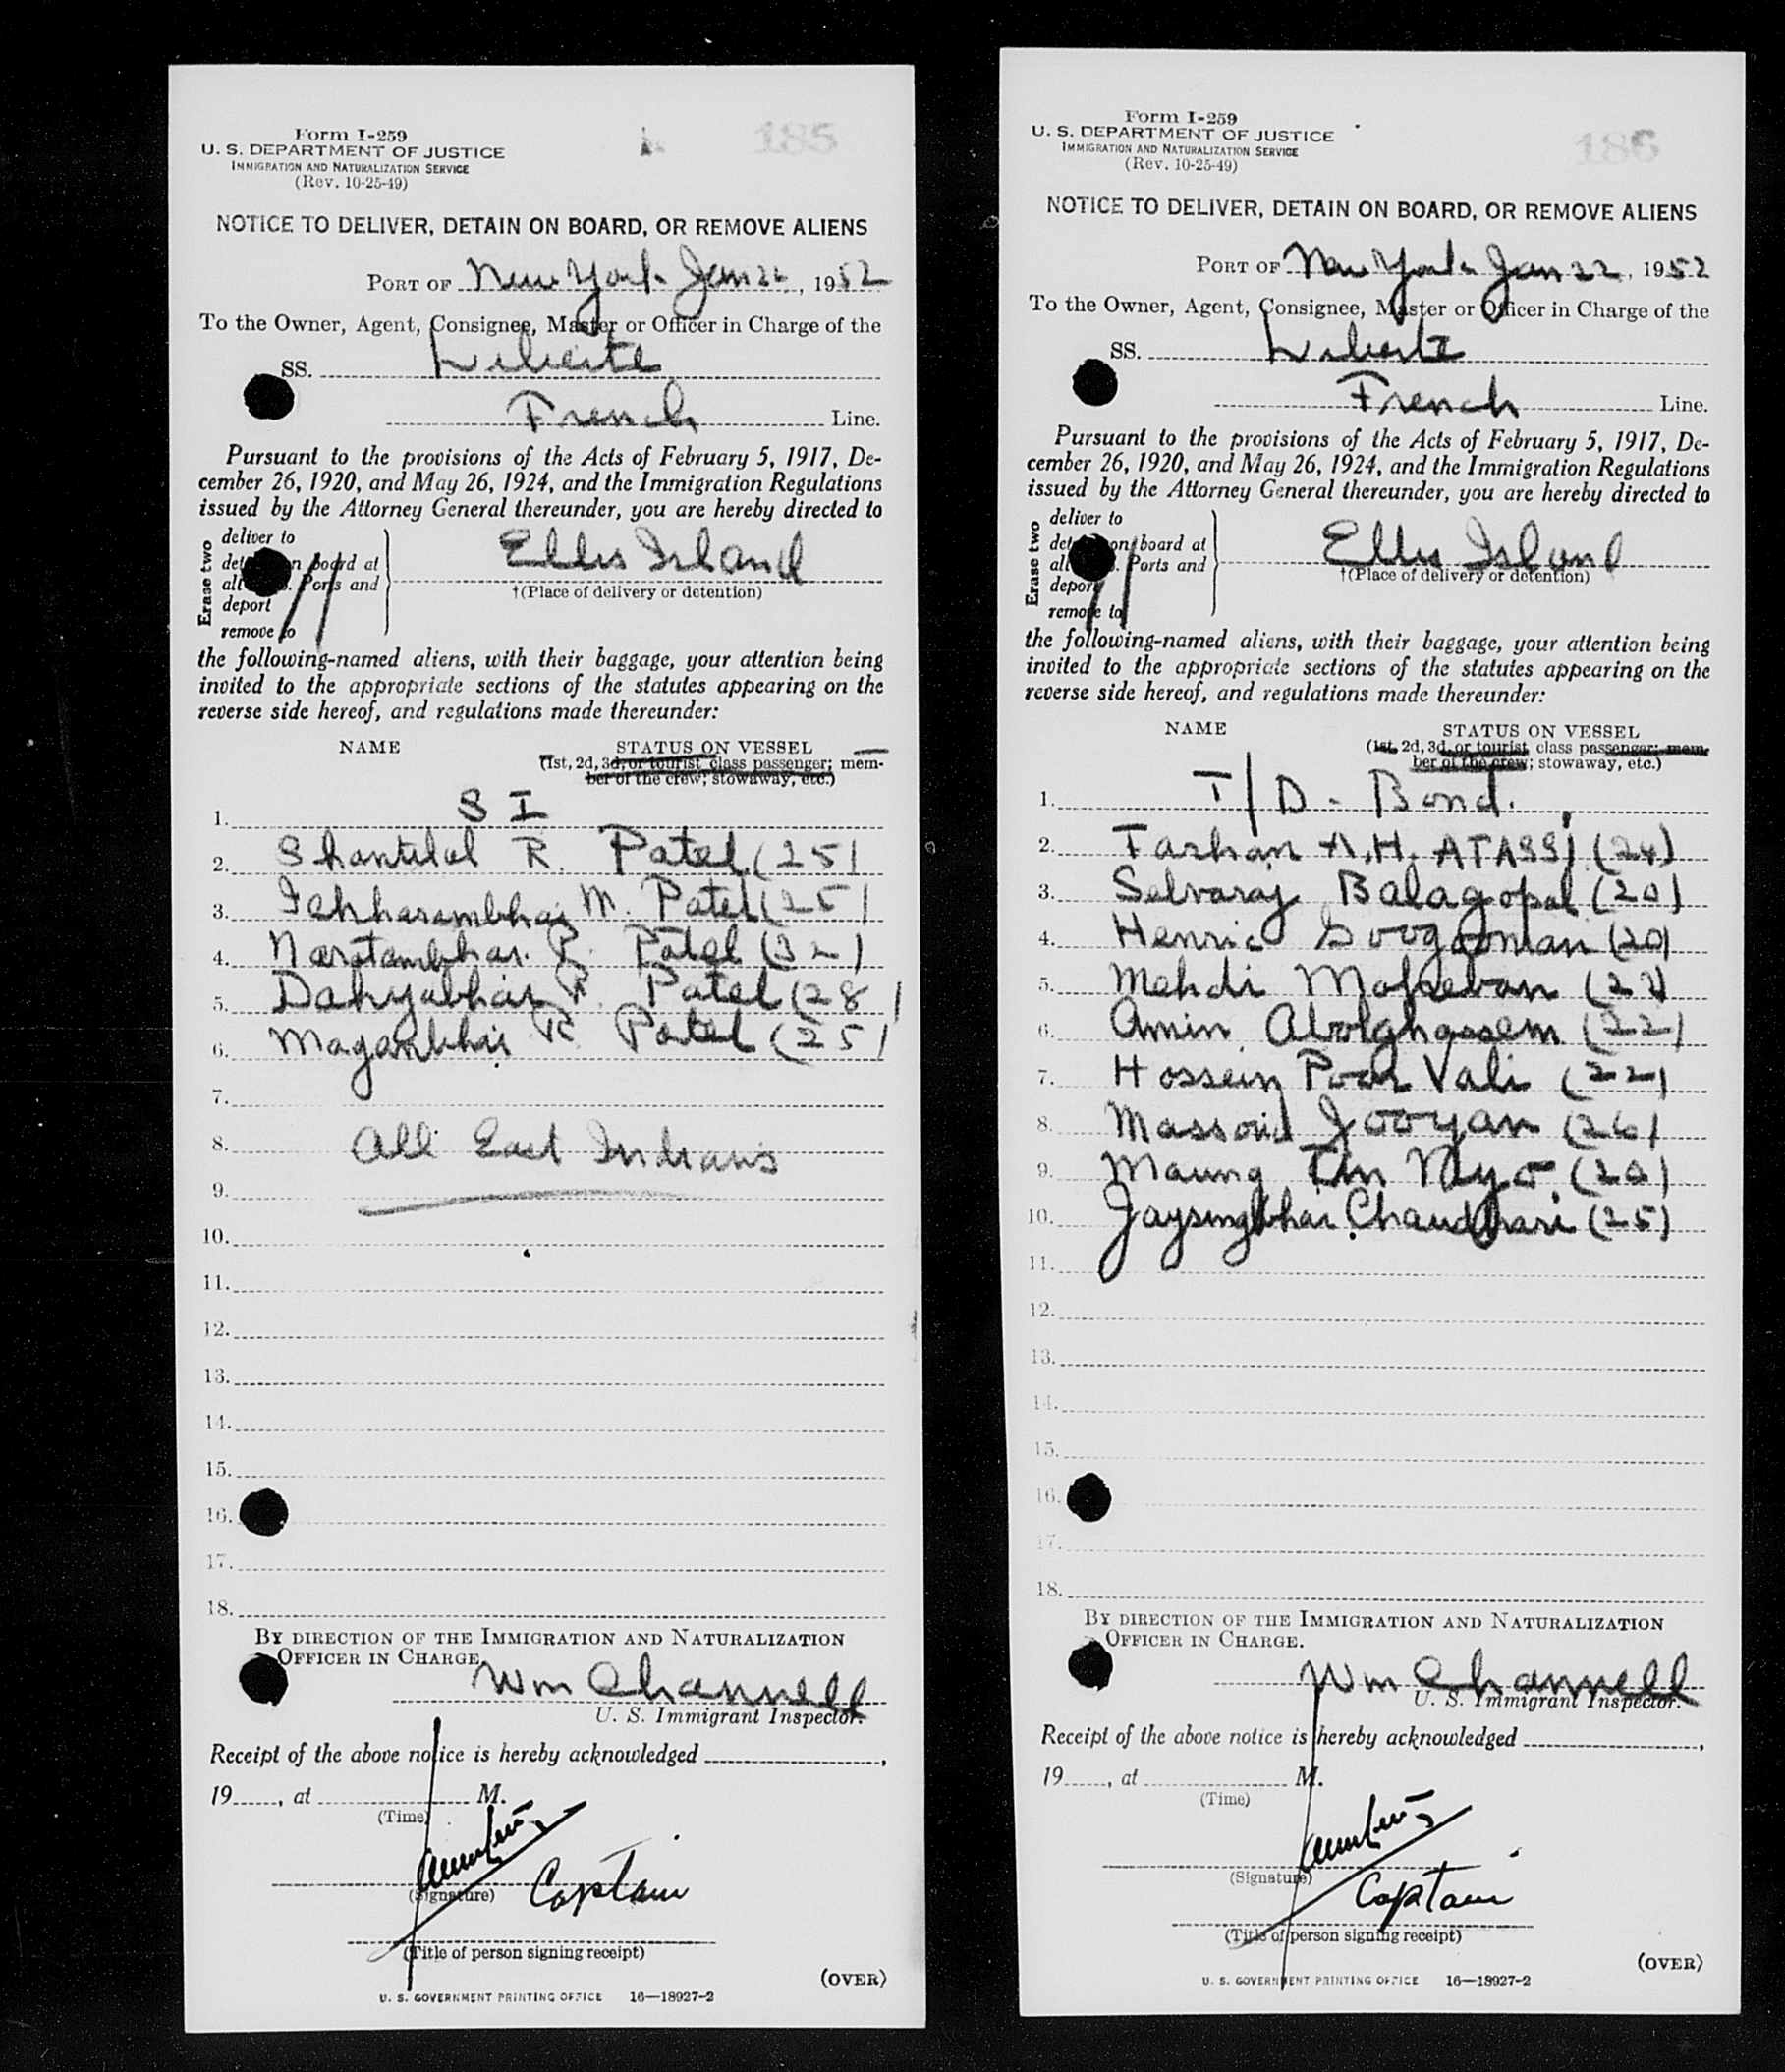 Form I-259
U. S. DEPARTMENT OF JUSTICE
IMMIGRATION AND NATURALIZATION SERVICE
(Rev. 10-25-49)
185
NOTICE TO DELIVER, DETAIN ON BOARD, OR REMOVE ALIENS
PORT OF New York Jan 22, 1952
To the Owner, Agent, Consignee, Master or Officer in Charge of the
SS. Liberte
French Line.
Pursuant to the provisions of the Acts of February 5, 1917, De-
cember 26, 1920, and May 26, 1924, and the Immigration Regulations
issued by the Attorney General thereunder, you are hereby directed to
Erase two
deliver to
on board at
Ports and
deport
remove to
Ellis Island
†(Place of delivery or detention)
the following-named aliens, with their baggage, your attention being
invited to the appropriate sections of the statutes appearing on the
reverse side hereof, and regulations made thereunder:
NAME STATUS ON VESSEL
(1st, 2d, 3d, or tourist class passenger; mem-
ber of the crew; stowaway, etc.)
1. S I
2. Shantilal R. Patel (25)
3. M. Patel (25)
4. Patel (32)
5. Dahyabhai R. Patel (28)
6. Maganbhai R Patel (25)
7.
8. All East Indians
9.
10.
11.
12.
13.
14.
15.
16.
17.
18.
BY DIRECTION OF THE IMMIGRATION AND NATURALIZATION
OFFICER IN CHARGE.
Wm Channell
U. S. Immigrant Inspector.
Receipt of the above notice is hereby acknowledged ,
19 , at M.
(Time)
(Signature) Captain
(Title of person signing receipt)
(OVER)
U. S. GOVERNMENT PRINTING OFFICE 16—18927-2
Form I-259
U. S. DEPARTMENT OF JUSTICE
IMMIGRATION AND NATURALIZATION SERVICE
(Rev. 10-25-49)
186
NOTICE TO DELIVER, DETAIN ON BOARD, OR REMOVE ALIENS
PORT OF New York Jan 22, 1952
To the Owner, Agent, Consignee, Master or Officer in Charge of the
SS. Liberte
French Line.
Pursuant to the provisions of the Acts of February 5, 1917, De-
cember 26, 1920, and May 26, 1924, and the Immigration Regulations
issued by the Attorney General thereunder, you are hereby directed to
Erase two
deliver to
on board at
Ports and
deport
remove to
Ellis Island
†(Place of delivery or detention)
the following-named aliens, with their baggage, your attention being
invited to the appropriate sections of the statutes appearing on the
reverse side hereof, and regulations made thereunder:
NAME STATUS ON VESSEL
(1st, 2d, 3d, or tourist class passenger; mem-
ber of the crew; stowaway, etc.)
1. T/D - Bond.
2. Farhan A.H. ATASSI (24)
3. Selvaraj Balagopal (20)
4. Henric (20)
5. Mehdi
6. Amin Abolghassem (22)
7. Hossein Poor Vali (22)
8. Massoud Jooyan (26)
9. Maung Tin Myo (20)
10. Jaysingbhai Chaudhari (25)
11.
12.
13.
14.
15.
16.
17.
18.
BY DIRECTION OF THE IMMIGRATION AND NATURALIZATION
OFFICER IN CHARGE.
Wm Channell
U. S. Immigrant Inspector.
Receipt of the above notice is hereby acknowledged ,
19 , at M.
(Time)
(Signature)
Captain
(Title of person signing receipt)
(OVER)
U. S. GOVERNMENT PRINTING OFFICE 16—18927-2